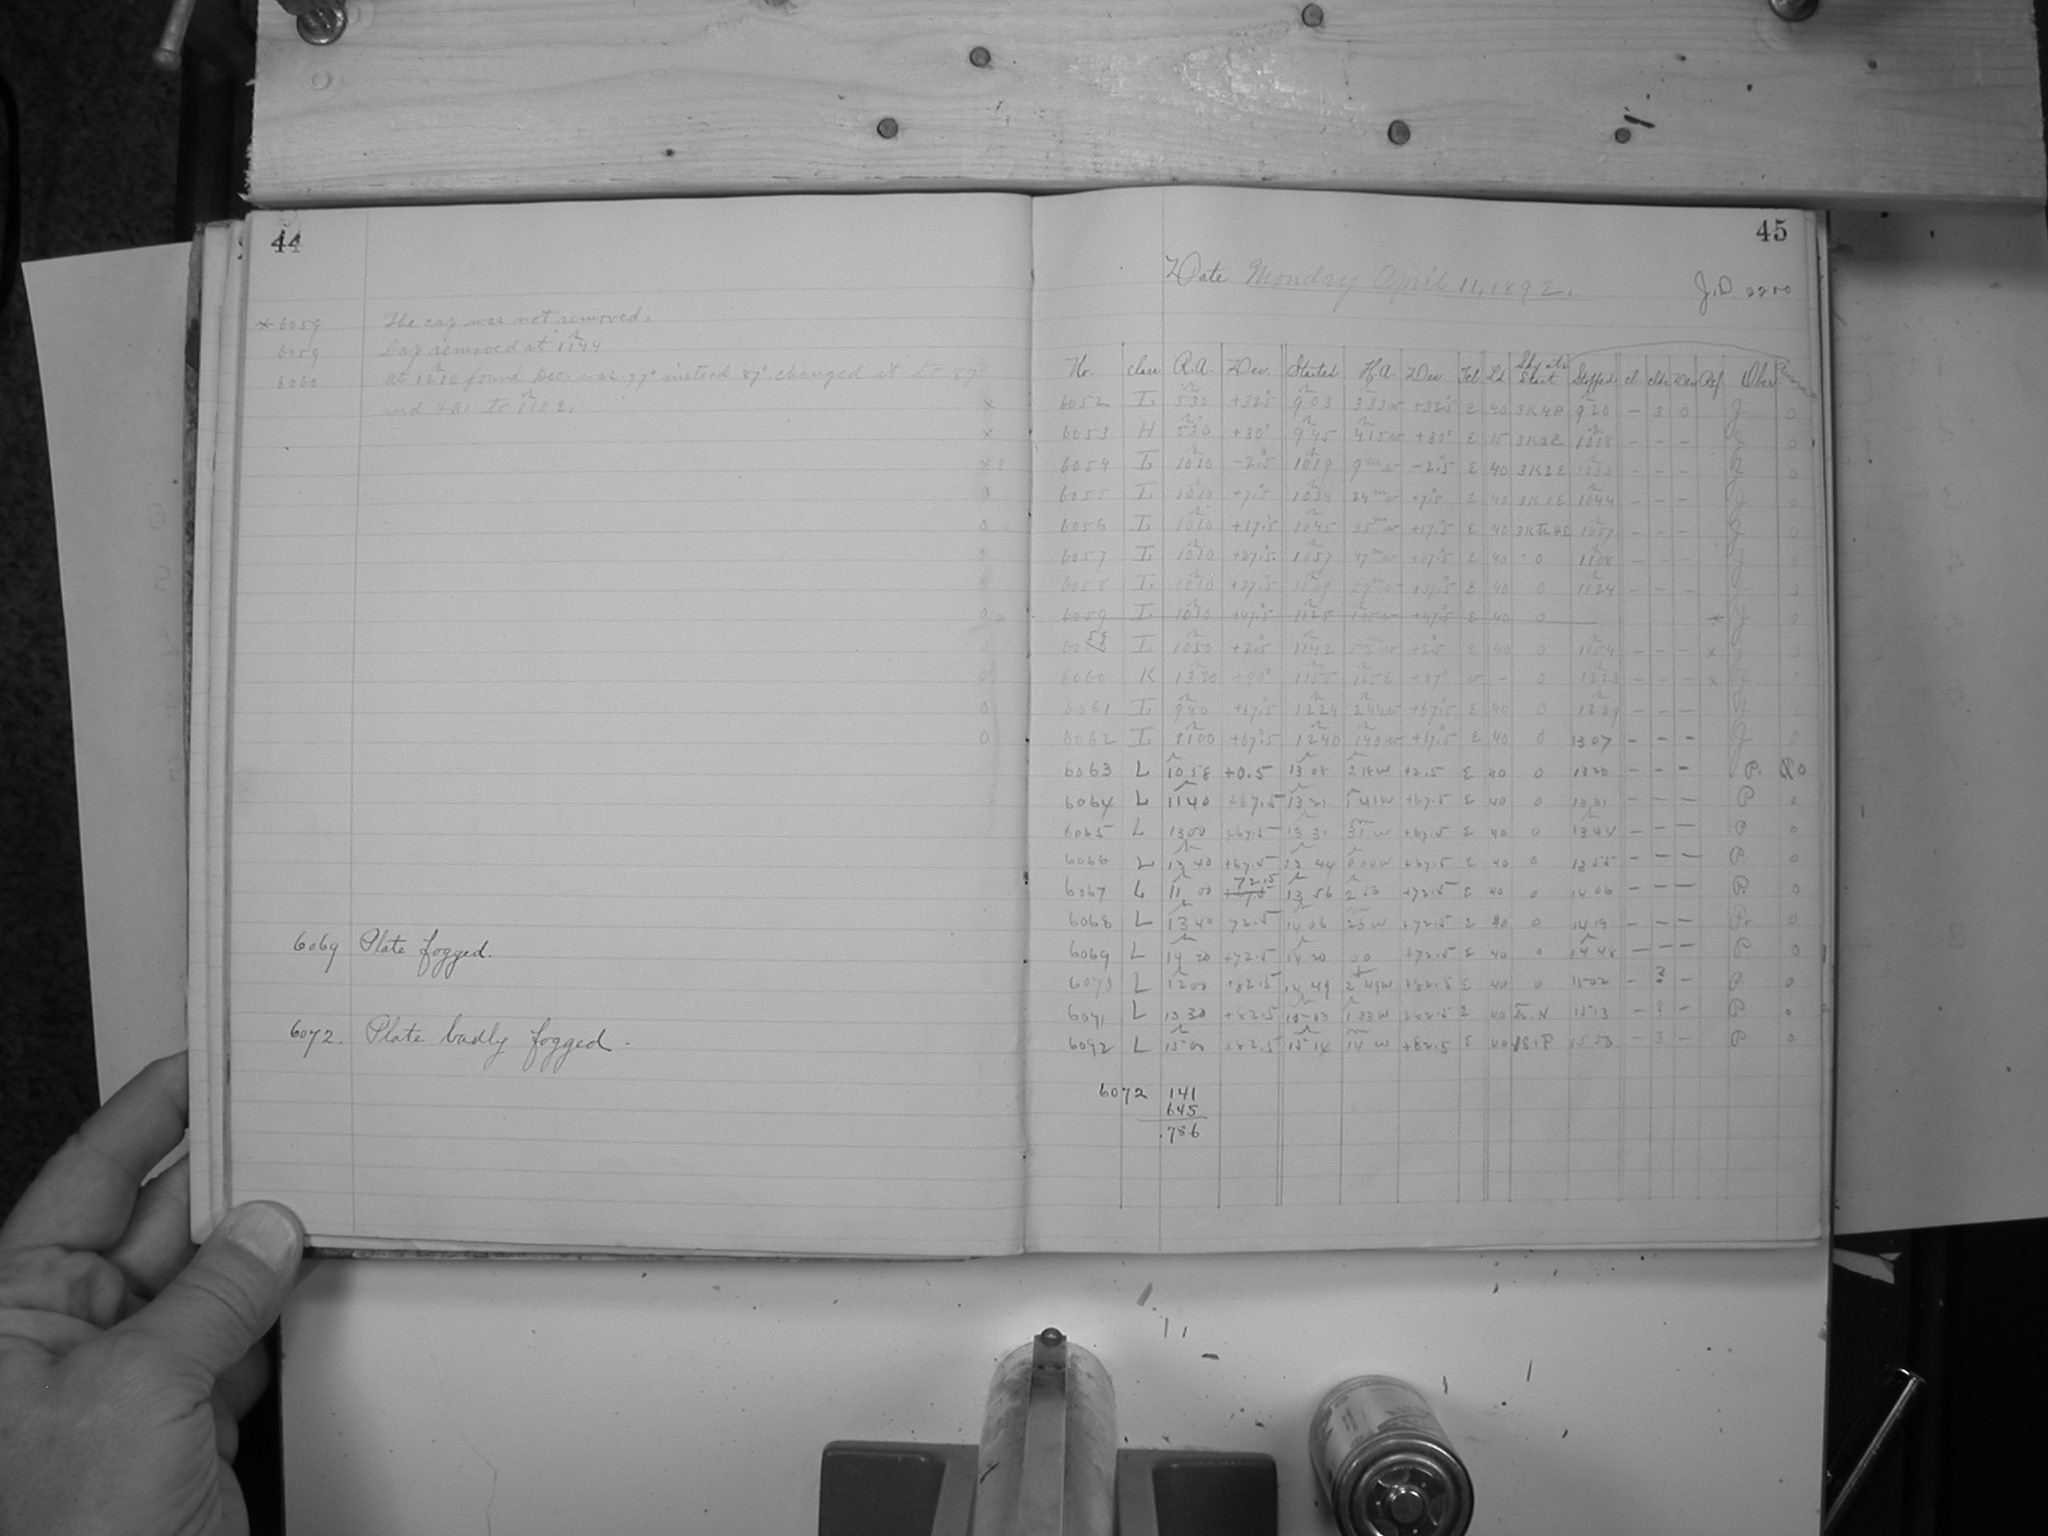 44
* 6059 The cap was not removed.
6059 Cap removed at 11h44
6060 at 1200 found Dec. was 97° instead 87°, changed it to 87°
and H.A. to 1h10 E.
6069 Plate fogged.
6072. Plate badly fogged.
45
Date Monday April 11, 1892.
J.D. 2200
No. class R.A. Dec. Started H.A. Dec. Tel. Ld Sky at Start Stopped cl. clds Dew Ref Obs.
6052 I 530 +32.5 903 333w +32.5 E 40 3K4P 920 - 3 0 J 0
6053 H 530 +30° 945 415w +30° E 15 3K3E 1018 - - - J 0
6054 I 1010 -2.5 1019 9m w -2.5 E 40 3K2E 1033 - - - J
6055 I 1010 +7.5 1034 24m w +7.5 E 40 3K1E 1044 - - - J 0
6056 I 1010 +17.5 1045 35m w +17.5 E 40 1057 - - - J 0
6057 I 1010 +27.5 1057 47m w +27.5 E 40 0 1108 - - - J 0
6058 I 1010 +37.5 1109 59m w +37.5 E 40 0 1124 - - - J 0
6059 I 1010 +47.5 1125 +47.5 E 40 0 * J 0
59 I 1050 +2.5 1142 52 w +2.5 E 40 0 1154 - - - x J 0
6060 K 1320 1155 125E +87° w - 0 1223 - - - x J 0
6061 I 940 +67.5 1224 244w +67.5 E 40 0 1239 - - - J 0
6062 I +67.5 1240 140w +67.5 E 40 0 1307 - - - J 0
6063 L 1058 +0.5 13 08 2 18w +2.5 E 40 0 1320 - - - P. 0
6064 L 1140 +67.5 13 21 1 41w +67.5 E 40 0 13 31 - - - P 0
6065 L 1300 +67.5 13 31 31 w +67.5 E 40 0 13 44 - - - P 0
6066 L 13 40 +67.5 13 44 0 04w +67.5 E 40 0 13 55 - - - P 0
6067 L 11 00 72.5 13 56 2 53 +72.5 E 40 0 14 06 - - - P 0
6068 L 13 40 72.5 14 06 23 w +72.5 E 40 0 1419 - - - Pr 0
6069 L 14 20 +72.5 14 20 00 +72.5 E 40 0 14 48 - - - P. 0
6070 L 1200 +82.5 14 49 2 49w +82.5 E 40 0 1502 - ? - P 0
6071 L 13 30 +82.5 15 03 1 33w +82.5 E 40 1513 - ? - P 0
6072 L 1500 +82.5 15 14 14 w +82.5 E 40 1S1P 15 53 - 3 - P 0
6072 141
645
.786